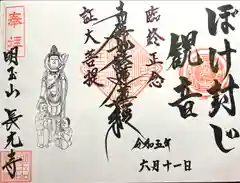 ぼけ封じ
観音
臨終正念
証大菩提
令和五年
六月十一日
奉拝
明王山
長光寺